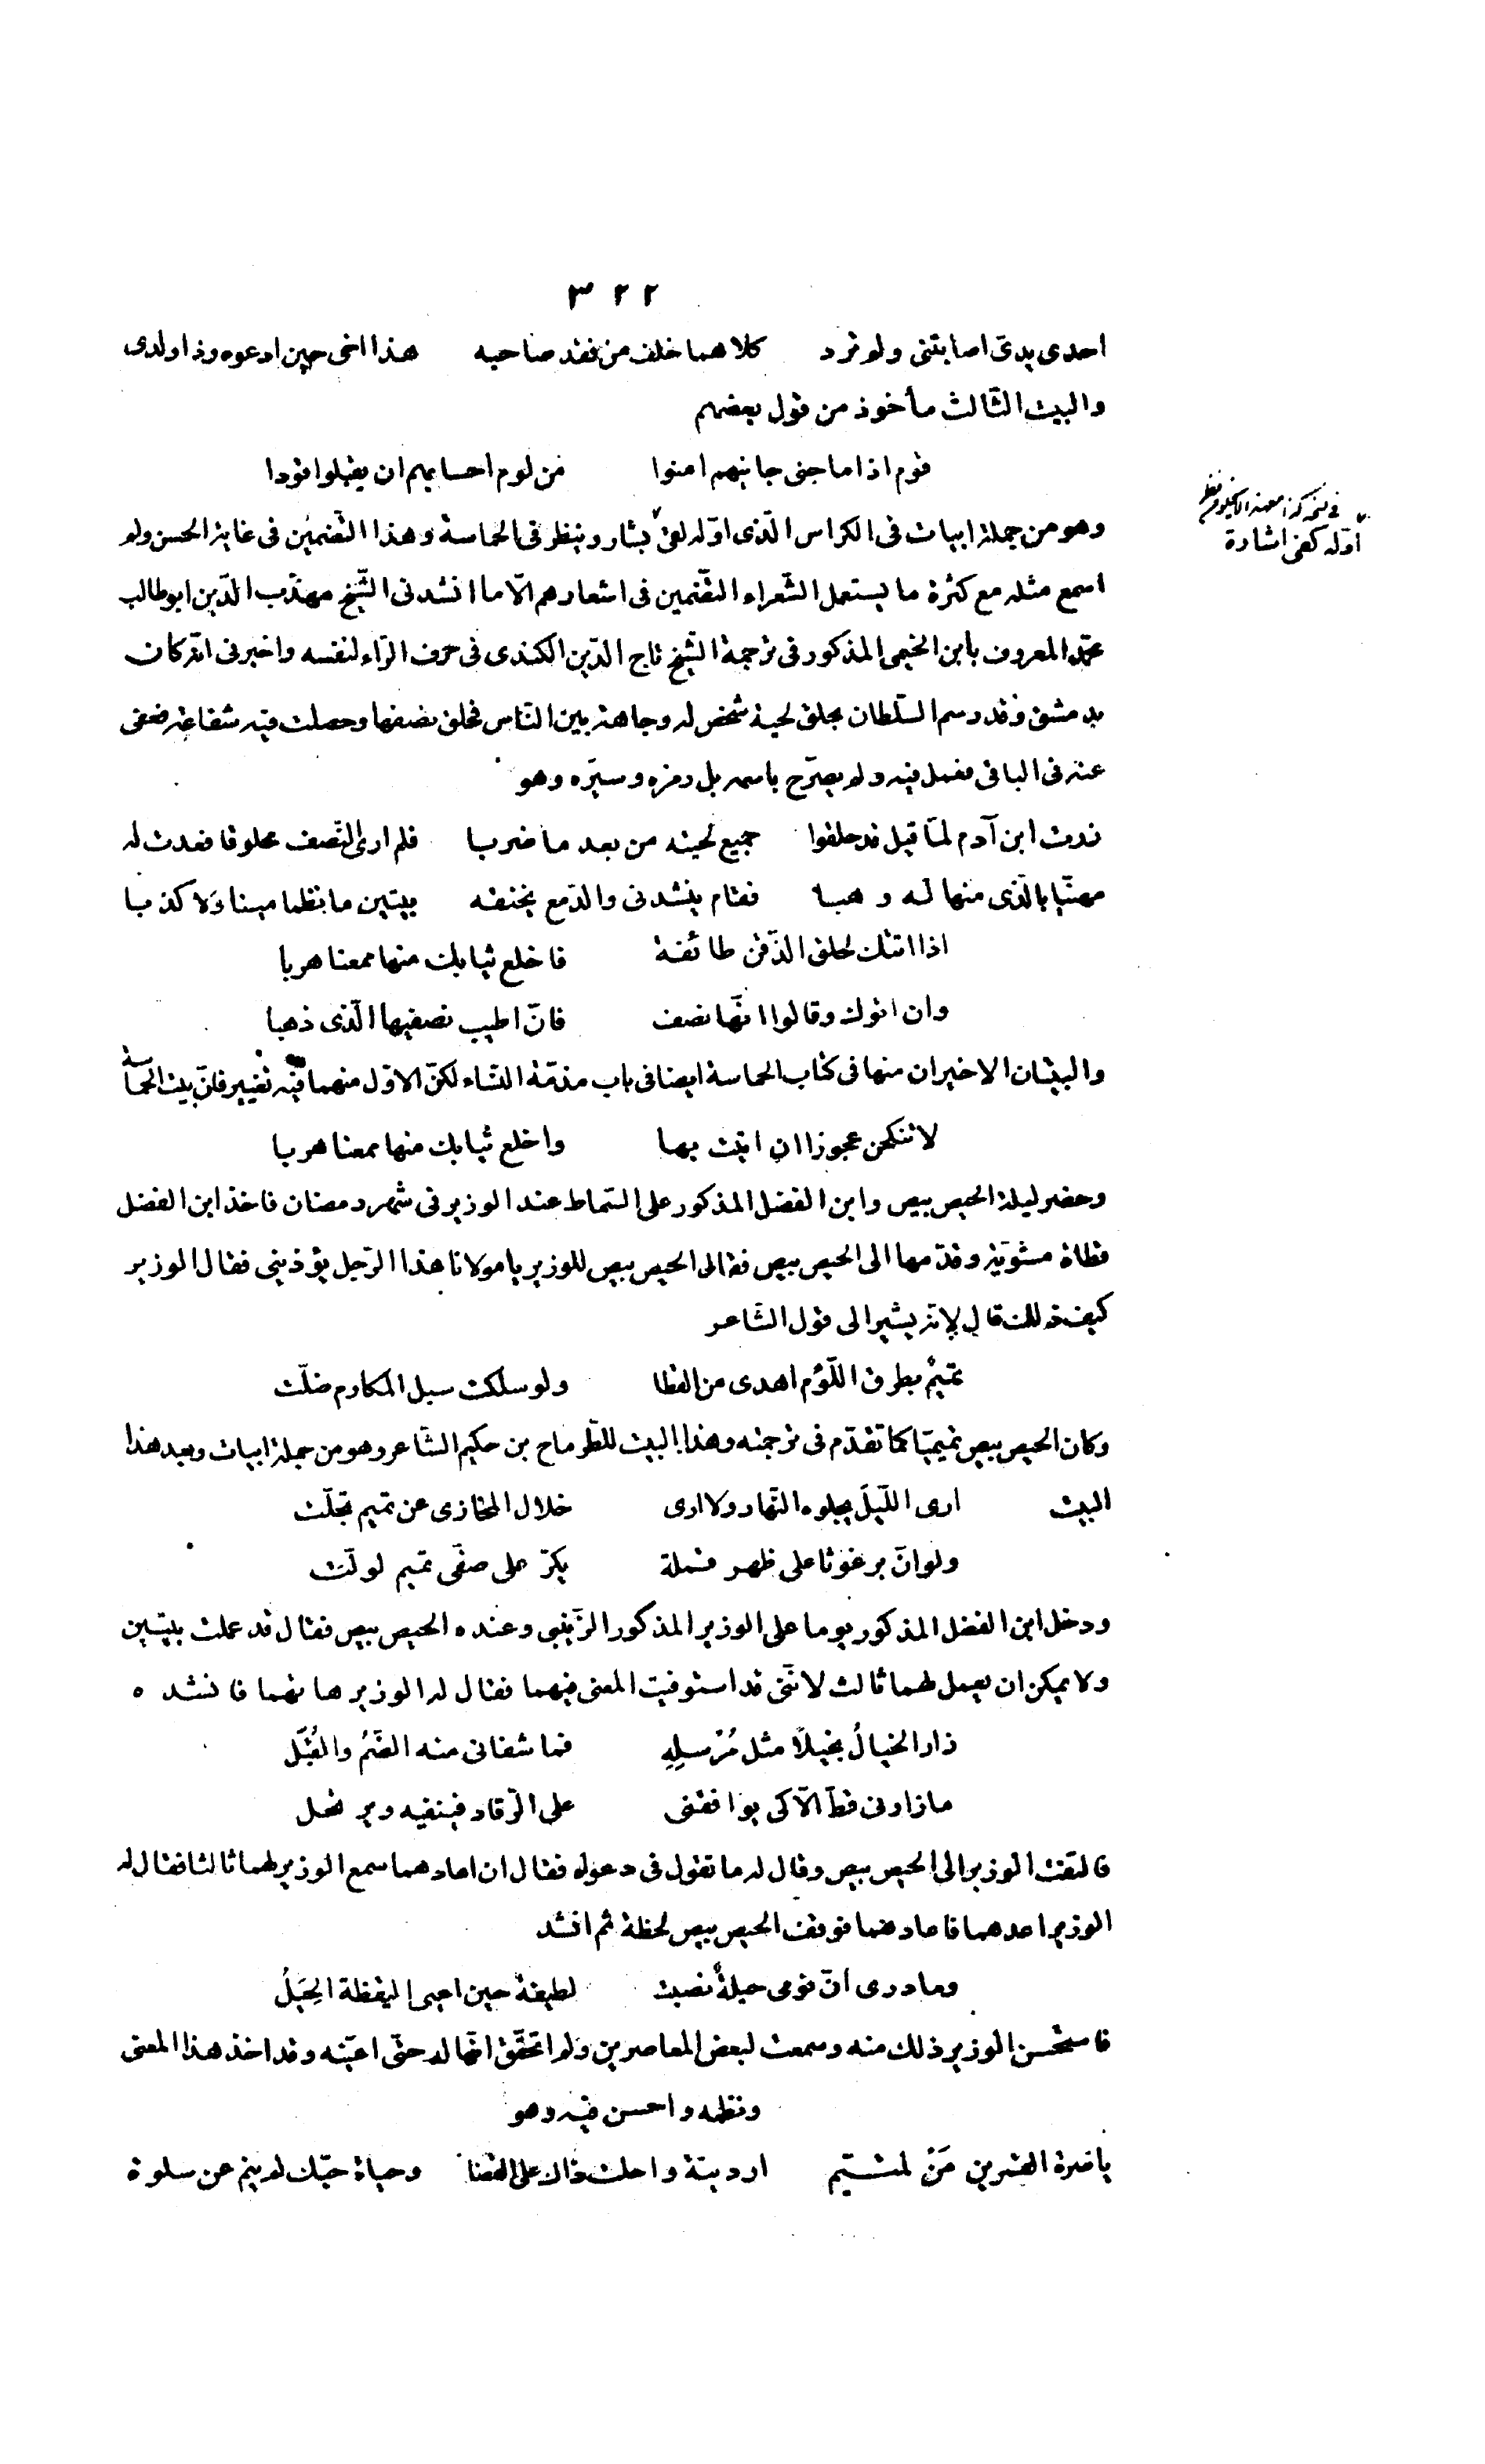 ٣٢٢
احدى يدىّ اصابتنى ولم ترد كلاهما خلف من فقد صاحبه هذا اخى حين ادعوه وذا ولدى
والبيت الثّالث مأخوذ من قول بعضهم
قوم اذا ما جنى جانيهم امنوا من لوم احسابهم ان يقتلوا قودا
وهو من جملة ابيات فى الكراس الّذى اوّله لفى بشار وينظر فى الحماسة وهذا التّضمين فى غاية الحسن ولم
اسمع مثله مع كثرة ما يستعمل الشّعراء التّضمين فى اشعارهم الّا ما انشدنى الشّيخ مهذّب الدّين ابو طالب
محمّد المعروف بابن الخيمى المذكور فى ترجمة الشّيخ تاج الدّين الكندى فى حرف الزّاء لنفسه واخبرنى انّه كان
بدمشق وقد رسم السّلطان بحلق لحية شخص له وجاهة بين النّاس فحلق نصفها وحصلت فيه شفاعة فعفى
عنه فى الباقى فعمل فيه ولم يصرّح باسمه بل رمزه وستره وهو
زرت ابن آدم لمّا قيل قد حلقوا جميع لحيته من بعد ما ضربا فلم ارى النّصف محلوقا فعدت له
مهنّيا بالّذى منها له وهبا فقام ينشدنى والدّمع يخنقه بيتين ما نظما مينا ولا كذبا
اذا اتتك لحلق الذّقن طائفة فاخلع ثيابك منها ممعنا هربا
وان اتوك وقالوا انّها نصف فانّ اطيب نصفيها الّذى ذهبا
والبيتان الاخيران منها فى كتاب الحماسة ايضا فى باب مذمّة النّساء لكنّ الاوّل منهما فيه تغيير فانّ بيت الحماسة
لا تنكحن عجوزا ان اتيت بها واخلع ثيابك منها ممعنا هربا
وحضر ليلة الحيص بيص وابن الفضل المذكور على السّماط عند الوزير فى شهر رمضان فاخذ ابن الفضل
قطاة مشويّة وقدّمها الى الحيص بيص فقال الحيص بيص للوزير يا مولانا هذا الرّجل يؤذينى فقال الوزير
كيف ذلك قال لانّه يشير الى قول الشّاعر
تميمٌ بطرق اللّؤم اهدى من القطا ولو سلكت سبل المكارم ضلّت
وكان الحيص بيص تميميّا كما تقدّم فى ترجمته وهذا البيت للطّرماح بن حكيم الشّاعر وهو من جملة ابيات وبعد هذا
البيت ارى اللّيل يجلوه النّهار ولا ارى خلال المخازى عن تميم تجلّت
ولو انّ برغوثا على ظهر قملة يكرّ على صفّى تميم لولّت
ودخل ابن الفضل المذكور يوما على الوزير المذكور الزّينبى وعنده الحيص بيص فقال قد عملت بيتين
ولا يمكن ان يعمل لهما ثالث لانّنى قد استوفيت المعنى فيهما فقال له الوزير هاتهما فانشده
زار الخيالُ بخيلًا مثل مُرْسلِهِ فما شفانى منه الضّمُّ والقُبَلُ
ما زارنى قطّ الّا كى يوافقنى على الرّقاد فينفيه ويرتحل
فالتفت الوزير الى الحيص بيص وقال له ما تقول فى دعواه فقال ان اعادهما سمع الوزير لهما ثالثا فقال له
الوزير اعدهما فاعادهما فوقف الحيص بيص لحظة ثم انشد
وما درى انّ نومى حيلةٌ نصبت لطيفة حين اعيى اليقظة الحِيَلُ
فاستحسن الوزير ذلك منه وسمعت لبعض المعاصرين ولم اتحقّق انّها له حتّى اعيّنه وقد اخذ هذا المعنى
ونظمه واحسن فيه وهو
يا ضرة القمرين مَنْ لمتيّم ارديته واحلت ذاك على القضا وحياة حبّك لم ينم عن سلوة
اوّله كفى اشارة